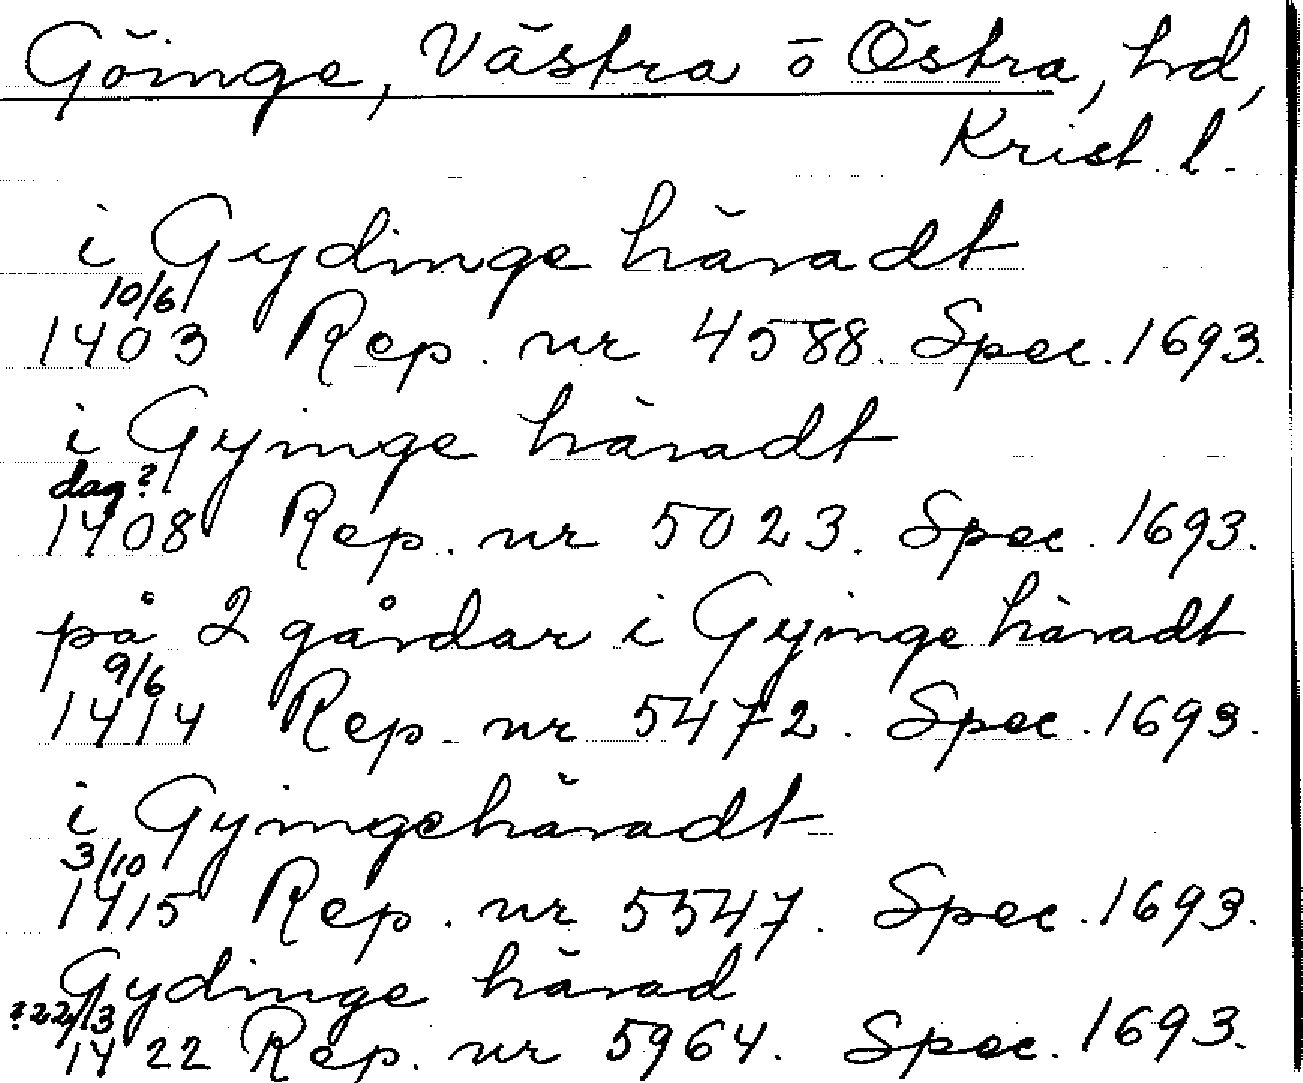 Göinge, Västra o Östra, hd,
Krist. l.
i Gydinge häradt
10/6
1403 Rep. nr 4588. Spec. 1693.
i Gyinge häradt
dag?
1408 Rep. nr 5023. Spec. 1693.
på 2 gårdar i Gyinge häradt
9/6
1414 Rep. nr 5472. Spec. 1693.
i Gyingehäradt
3/10
1415 Rep. nr 5547. Spec. 1693.
Gydinge härad
?22/3
1422 Rep. nr 5964. Spec. 1693.